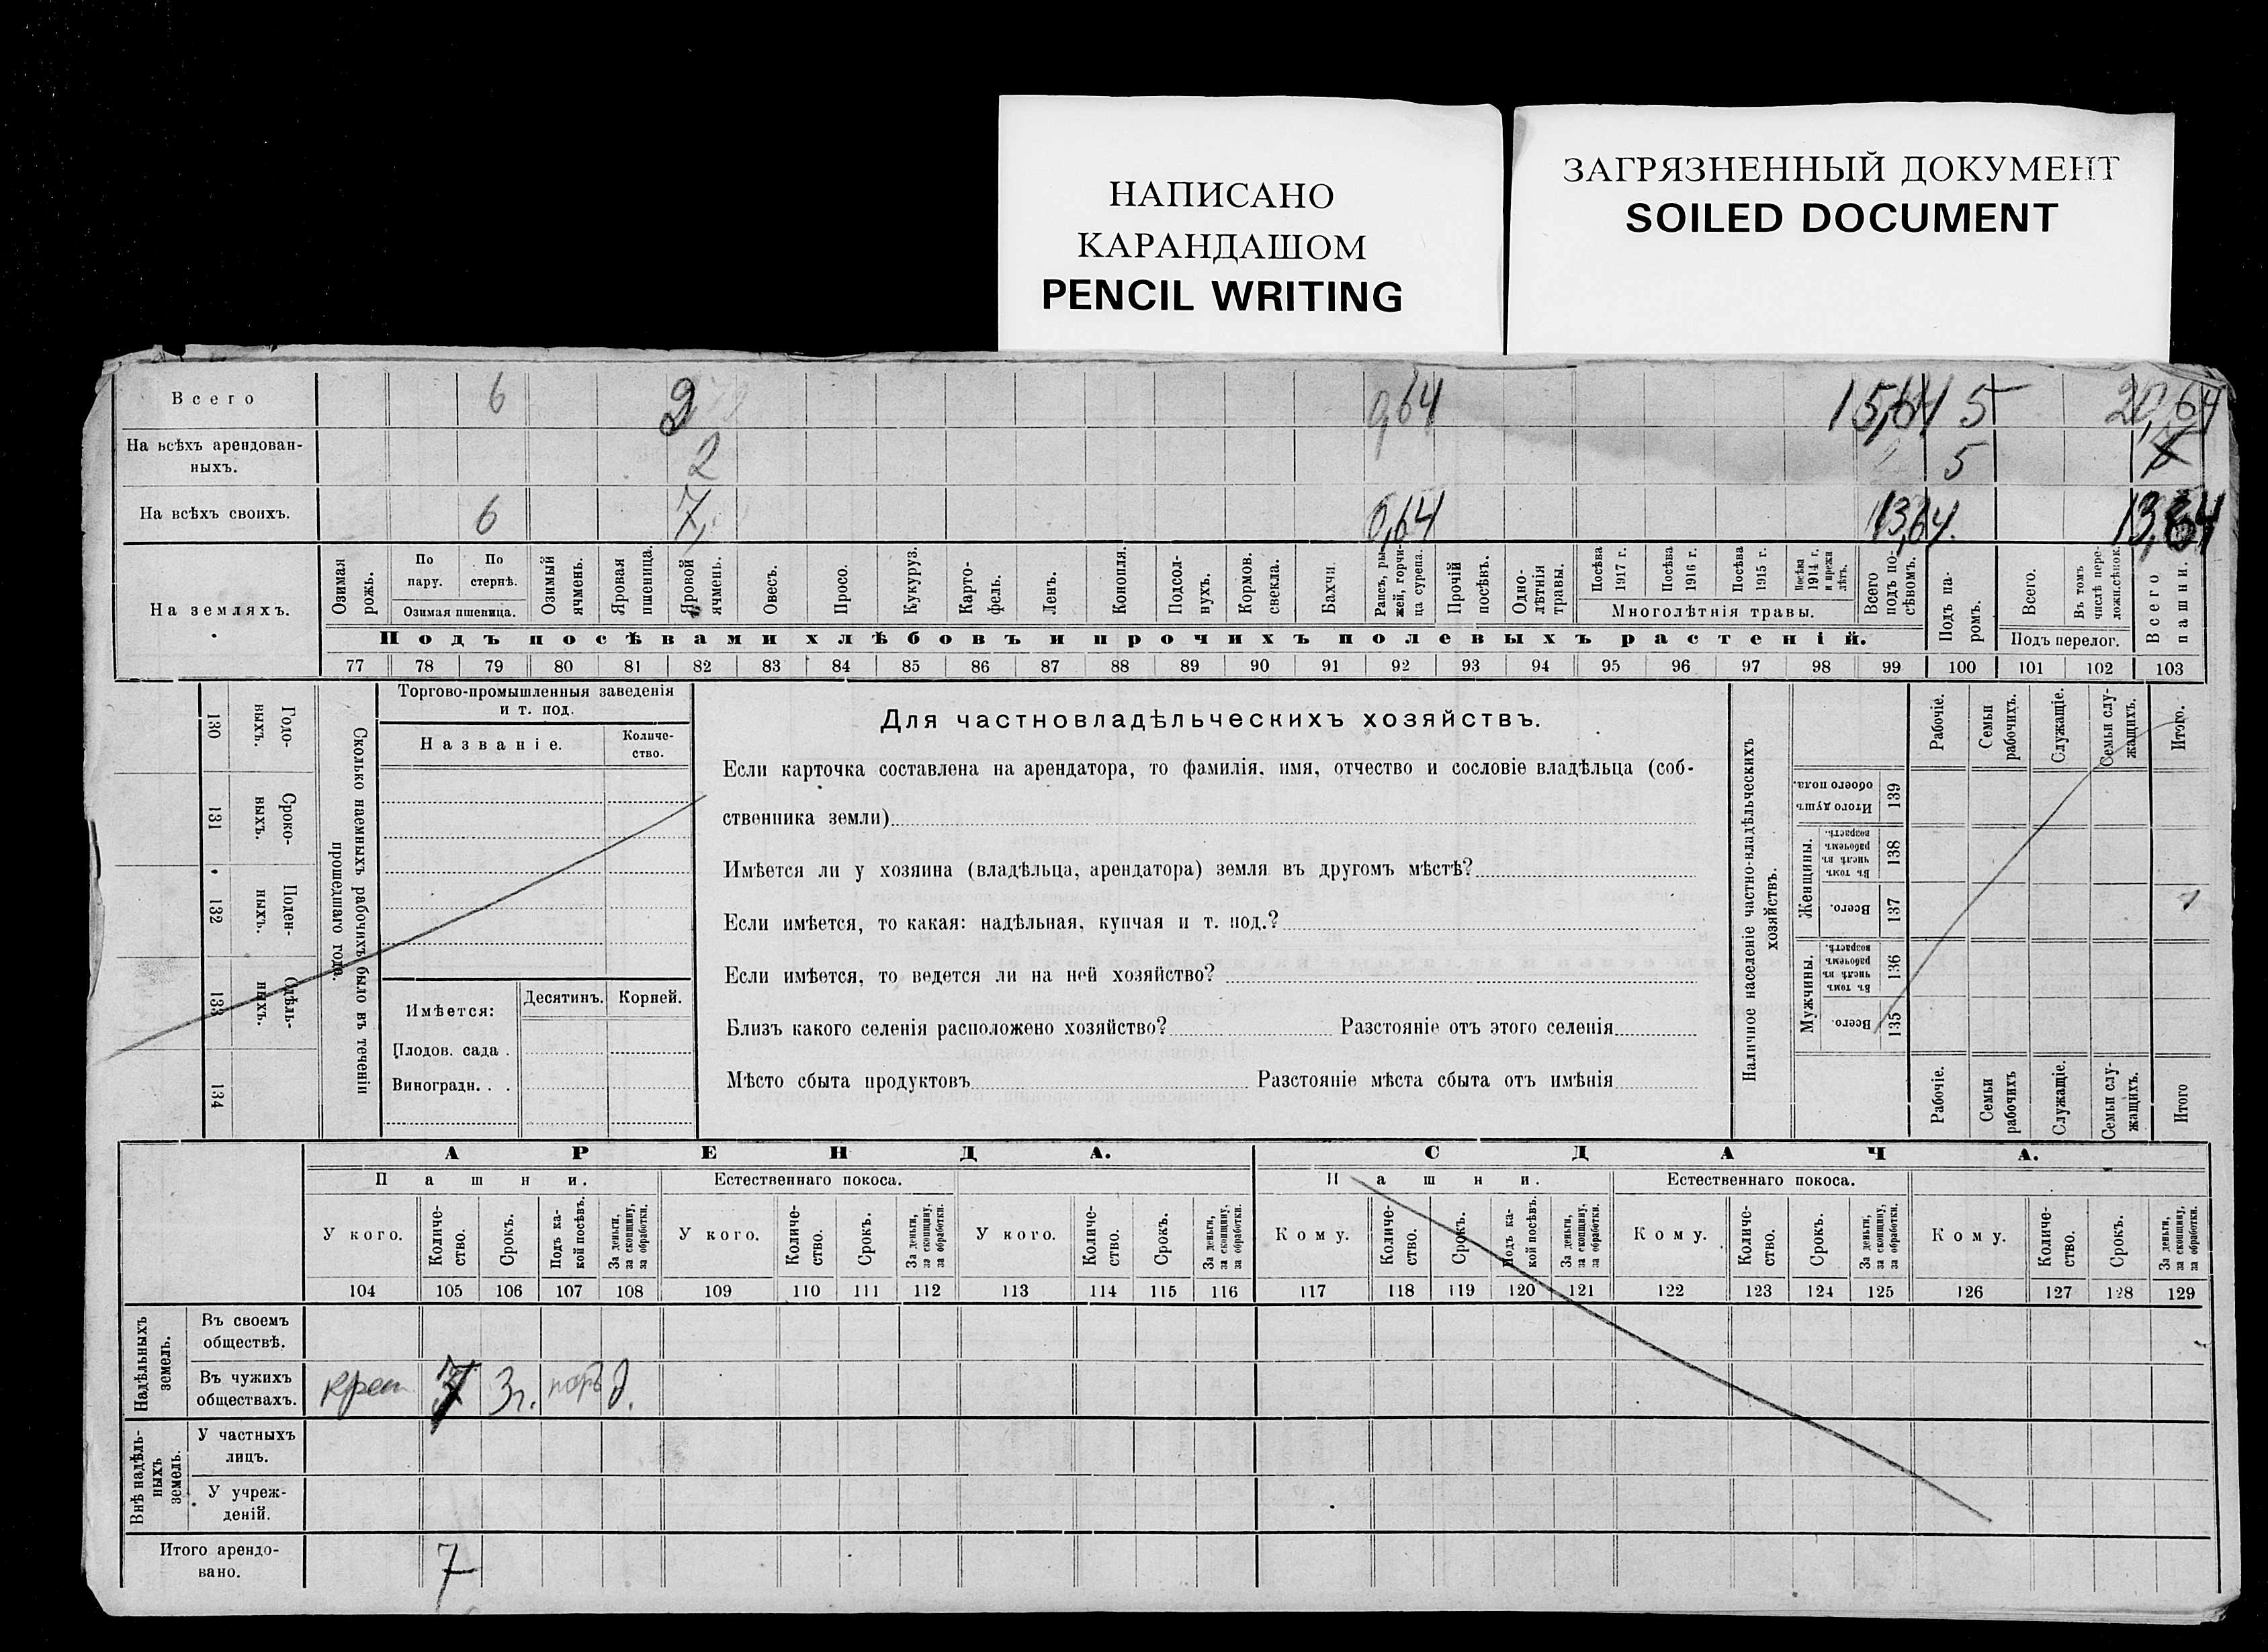 НАПИСАНО
КАРАНДАШОМ
PENCIL WRITING
ЗАГРЯЗНЕННЫЙ ДОКУМЕНТ
SOILED DOCUMENT
Всего 6 9 0,64 15,64 5 20,64
На всѣхъ арендован-
ныхъ. 2 5
На всѣхъ своихъ. 6 7 0,64 13,64 13,64
На земляхъ.
Озимая рожь.
По пару.
По стернѣ.
Озимая пшеница.
Озимый ячмень.
Яровая пшеница.
Яровой ячмень.
Овесъ.
Просо.
Кукуруз.
Карто-
фель.
Ленъ.
Конопля.
Подсол-
нухъ.
Кормов. свекла.
Бахчи.
Рапсъ, ры-
жей, горчи-
ца сурепа.
Прочій посѣвъ.
Одно-
лѣтнія травы.
Посѣва 1917 г.
Посѣва 1916 г.
Посѣва 1915 г.
Посѣва 1914 г. и прежн. лѣтъ.
Многолѣтнія травы.
Всего подъ по-
сѣвомъ.
Подъ па-
ромъ.
Всего.
Въ томъ числѣ пере-
ложн.сѣнок.
Подъ перелог.
Всего пашни.
Подъ посѣвами хлѣбовъ и прочихъ полевыхъ растеній.
77 78 79 80 81 82 83 84 85 86 87 88 89 90 91 92 93 94 95 96 97 98 99 100 101 102 103
130 Годо-
ныхъ.
131 Сроко-
ныхъ.
132 Поден-
ныхъ.
133 Сдѣль-
ныхъ.
134
Сколько наемныхъ рабочихъ было въ теченіи
прошедшаго года.
Торгово-промышленныя заведенія
и т. под.
Названіе.
Количе-
ство.
Имѣется:
Десятинъ.
Корней.
Плодов. сада .
Виноградн. . .
Для частновладѣльческихъ хозяйствъ.
Если карточка составлена на арендатора, то фамилія, имя, отчество и сословіе владѣльца (соб-
ственника земли)
Имѣется ли у хозяина (владѣльца, арендатора) земля въ другомъ мѣстѣ?
Если имѣется, то какая: надѣльная, купчая и т. под.?
Если имѣется, то ведется ли на ней хозяйство?
Близъ какого селенія расположено хозяйство? Разстояніе отъ этого селенія
Мѣсто сбыта продуктовъ Разстояніе мѣста сбыта отъ имѣнія
Наличное населеніе частно-владѣльческихъ
хозяйствъ.
Рабочіе.
Семьи рабочихъ.
Служащіе.
Семьи слу-
жащихъ.
Итого.
Итого душъ обоего пола. 139
Женщины.
Въ томъ числѣ въ рабочемъ возрастѣ. 138
Всего. 137
Мужчины.
Въ томъ числѣ въ рабочемъ возрастѣ. 136
Всего. 135
Рабочіе.
Семьи рабочихъ
Служащіе.
Семьи слу-
жащихъ.
Итого
АРЕНДА. СДАЧА.
Пашни. Естественнаго покоса. Пашни. Естественнаго покоса.
У кого.
Количе-
ство.
Срокъ.
Подъ ка-
кой посѣвъ.
За деньги, за скопщину, за обработки.
У кого.
Количе-
ство.
Срокъ.
За деньги, за скопщину, за обработки.
У кого.
Количе-
ство.
Срокъ.
За деньги, за скопщину, за обработки.
Кому.
Количе-
ство.
Срокъ.
Подъ ка-
кой посѣвъ.
За деньги, за скопщину, за обработки.
Кому.
Количе-
ство.
Срокъ.
За деньги, за скопщину, за обработки.
Кому.
Количе-
ство.
Срокъ.
За деньги, за скопщину, за обработки.
104 105 106 107 108 109 110 111 112 113 114 115 116 117 118 119 120 121 122 123 124 125 126 127 128 129
Надѣльныхъ земель.
Въ своемъ
обществѣ.
Въ чужихъ
обществахъ. крест 7 3г. д.
Внѣ надѣль-
ныхъ земель.
У частныхъ
лицъ.
У учреж-
деній.
Итого арендо-
вано. 7